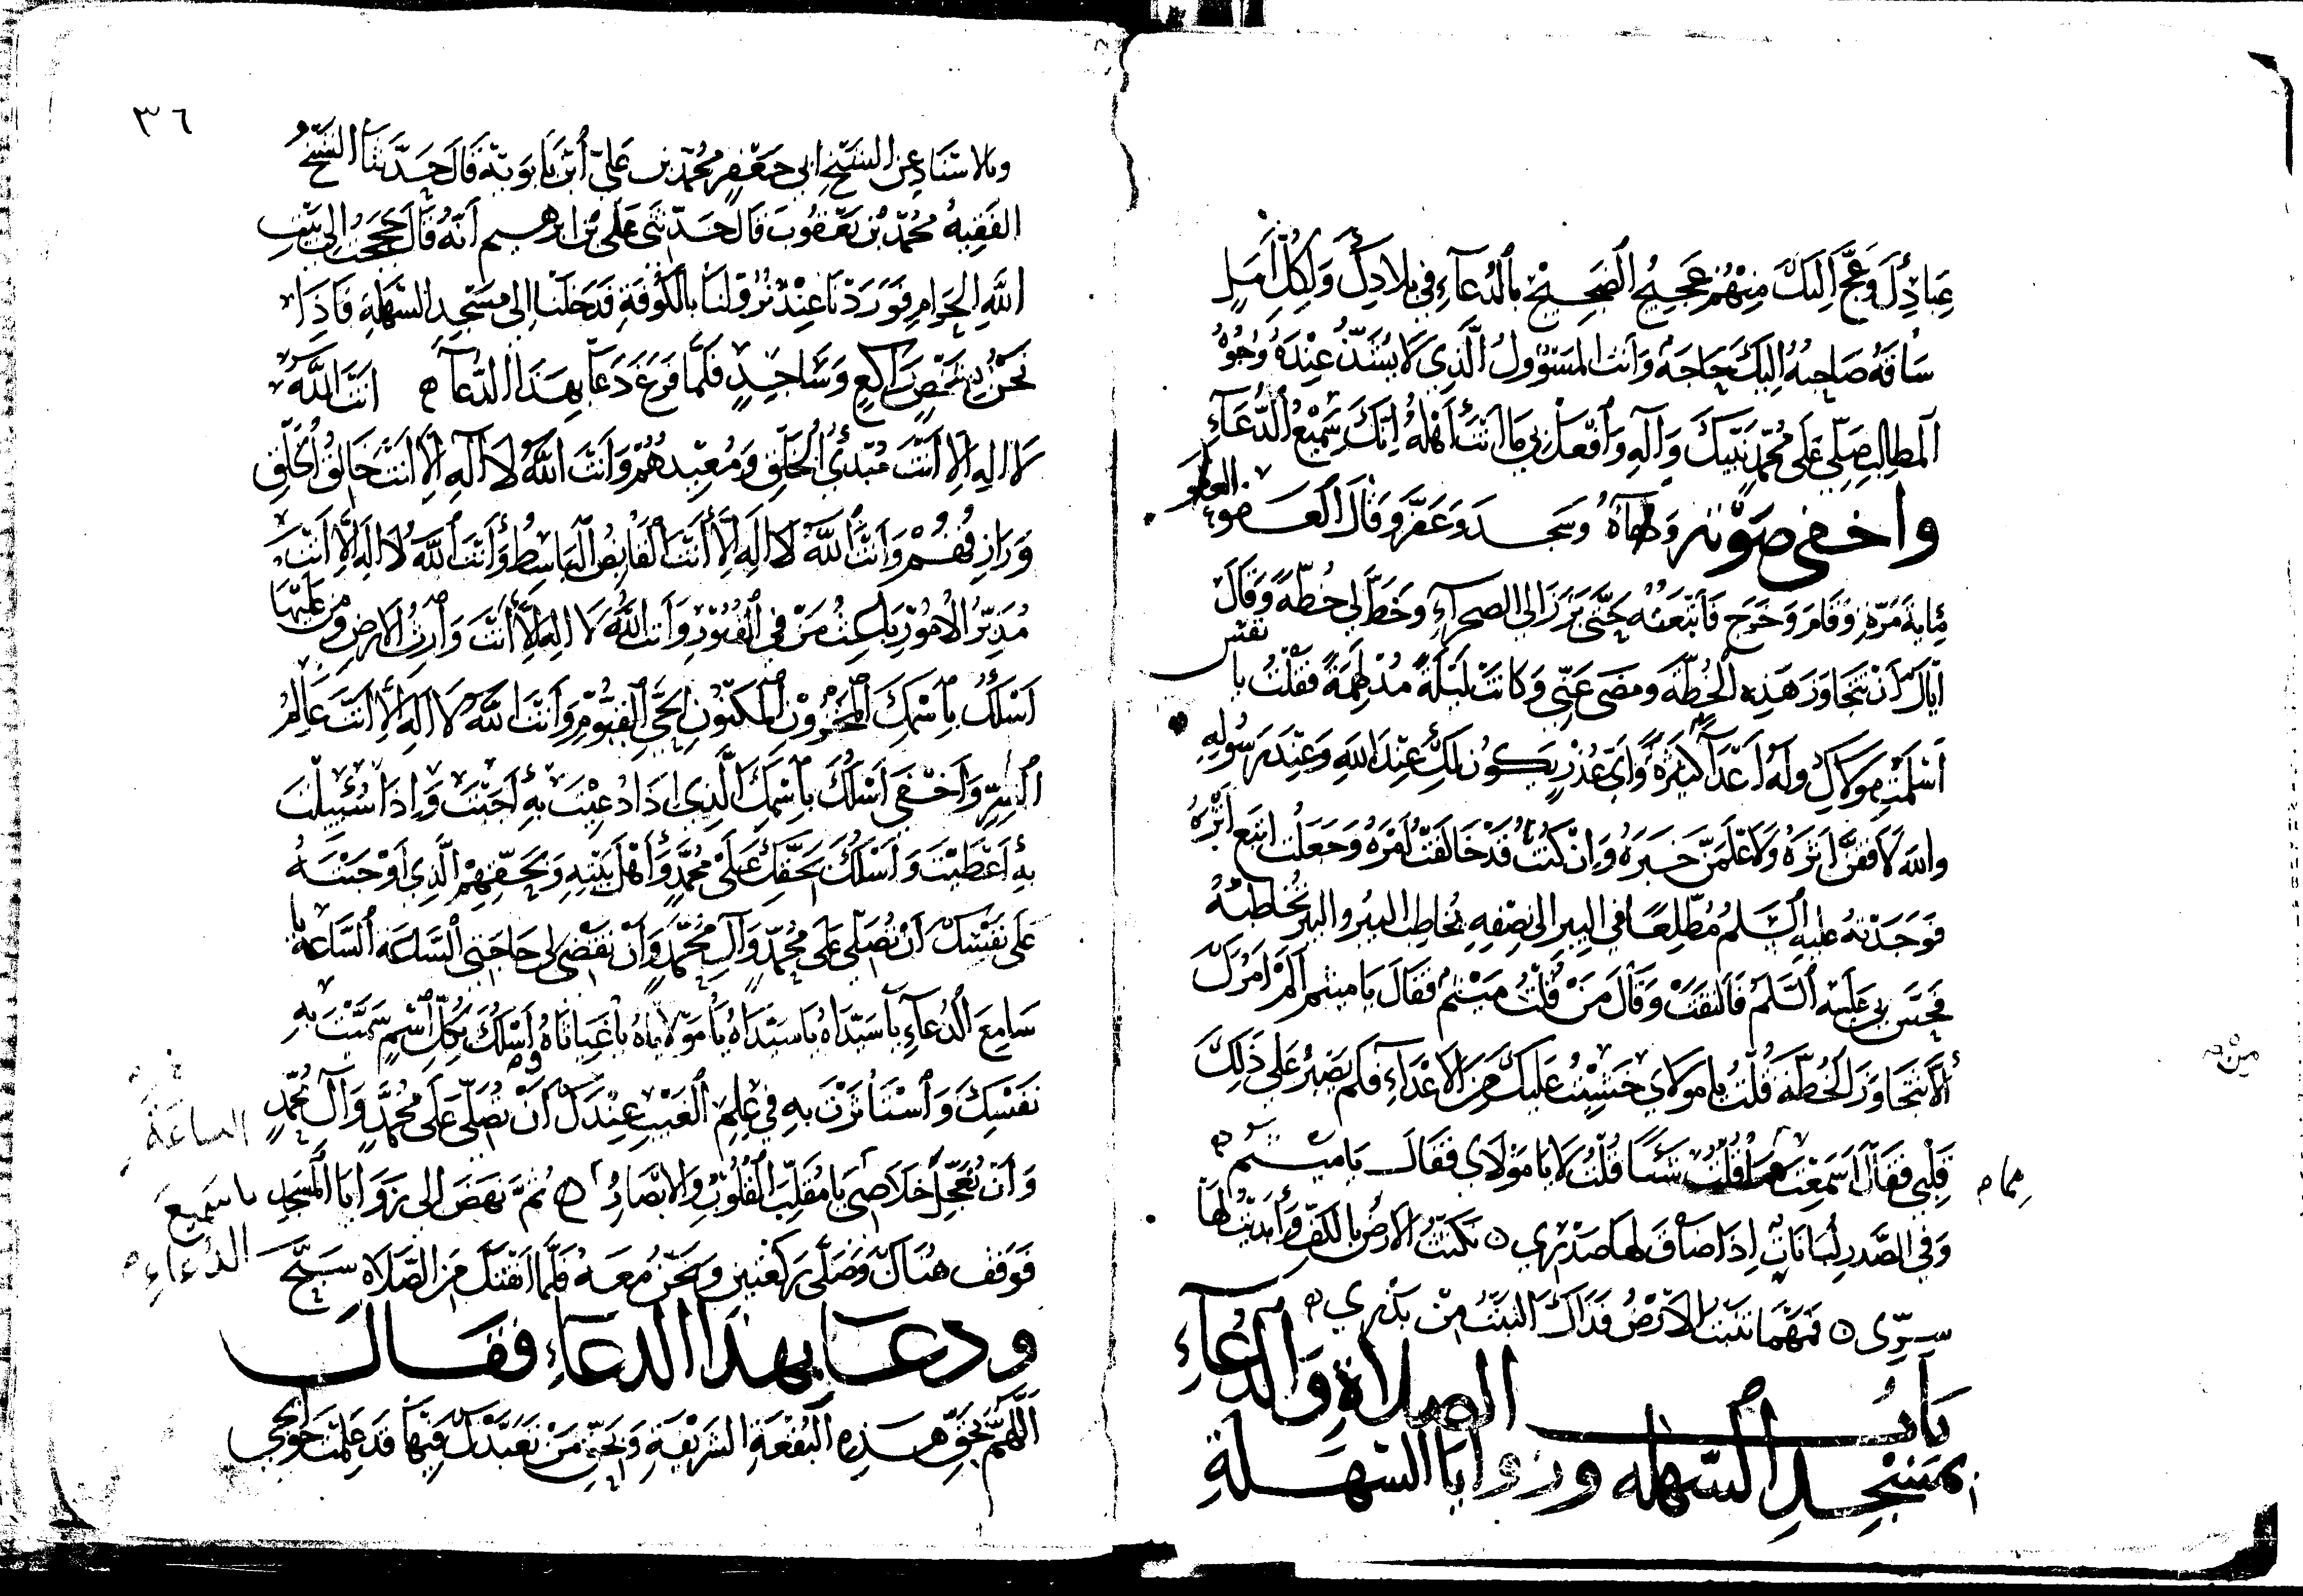 عِبَادِكَ وَعَجَّ اِلَيكَ مِنْهُم عَجِيجُ الضَجِيجْ بالدُعآءِ في بلادِكَ وَلِكُلِّ اَمَلٍ
سَاقَهُ صَاحِبهُ اِليكَ حَاجَة وَانت المَسْؤولُ الَّذي لَا يسْوَدّ عِنْدَهُ وُجُوهُ
المطالِب صَلّى عَلَى مُحمّد نَبيّكَ وَآلهِ وَافْعل بي مَا انتَ اَهْلهُ اِنّكَ سَمِيعُ الدُّعَآءِ
واخفى صَوْته وَدُعآهُ وسَجد وَعَفَّر وَقالَ العَفو العفو
مِايةَ مَرّةٍ وَقَامَ وَخَرَج فاتبَعتُه حَتّى بَرَزَ الى الصحرآءِ وخَطّ لي خُطّة وَقالَ
ايّاكَ اَنْ تتجَاوَزَ هَذِه الخُطّة ومضى عَنّي وَكانتْ لَيلَةً مُدْلَهِمّةً فقُلْتُ يا نفس
اَسْلَمتِ مَولاكِ ولَهُ اَعدَآءٌ كثيرَةٌ وَايّ عُذرٍ يَكونُ لكِ عِندَ اللهِ وَعِندَ رَسُولِهِ
والله لَاقفُنّ اثرَهُ وَلاعْلَمَنّ خَبرَهُ وَانْ كُنتُ قَدْ خَالَفتُ اَمْرَهُ وَجَعَلت اتبَع اثَرهُ
فوَجَدْتهُ عليهِ السَّلمُ مُطّلِعًا في البِير الى نِصْفِهِ يُخاطِب البِيرُ والبِير تُخَاطبُهُ
فحَسّ بي عَلَيه السَّلمُ فَالتفَتَ وَقالَ مَنْ قُلتُ مِيْثم فقالَ يا ميثم اَلَمْ امُركَ
اَلّا تتجَاوَزَ الخُطّة قُلتُ يا مَولاي خَشِيْتُ عَليكَ مِنَ الاَعْدآءِ فلَم يَصْبر عَلى ذَلِكَ
قَلْبي فقالَ اَسَمِعْتَ مِمّا قُلتُ شَيئًا قُلتُ لَا يا مَوْلاي فقالَ يا ميثم
مما
وَفي الصَّدر لُبَانَاتٌ اِذَا ضَاقَ لهَا صَدْري ٥ نكَتُّ الارْضَ بالكَفِّ وَابدَيتُ لهَا
سِرِّي ٥ فمَهْما تنبتُ الاَرْضُ فذَاكَ النَبتُ مِنْ بَذْري
بَابُ الصلاةِ وَالدُعآءِ
بمَسْجِدِ السَّهله وزوايا السَّهلَةِ
٣٦
وبالاسْنَادِ عن الشيخ ابي جَعفر محُمّد بن عَليّ ابْن بَابويَه قَالَ حَدَّثنا الشَيخ
الفَقِيهُ محُمّد بْن يَعقُوبَ قَالَ حَدّثني عَلي بْن ابرهيم انّهُ قَالَ حَجَجتُ الى بَيت
اللهِ الحَرَامِ فوَرَدْنَا عِنْدَ نزُولنَا بالكُوفةِ فدَخلنا الى مَسْجِد السّهلَةِ فاذَا
نَحْنُ بشخصٍ رَاكِعٍ وَسَاجِدٍ فلَمّا فرَغ دَعَا بهَذا الدُعآءِ انتَ اللهُ
لا اله اِلا انتَ مُبْدئ الخَلقِ وَمُعِيدهُمْ وَانتَ اللهُ لَا اَلَهَ اِلَّا اَنتَ خَالِقُ الخَلقِ
وَرَازِقُهُمْ وَانتَ اللهُ لَا اِلَه اِلّا اَنتَ القَابِضُ البَاسِطُ وَاَنتَ اللهُ لَا اِلَهَ اِلَّا اَنتَ
مُدَبّرُ الاُمُورِ بَاعِثُ مَنْ في القُبُورِ وَاَنتَ اللهُ لا اِلهَ اِلّا اَنتَ وَارِثُ الارضِ وَمَن عَليْهَا
اَسْئَلُكَ بِاسْمِكَ المَخزُونِ المكنُونِ الحَيّ القيّومِ وَانتَ اللهُ لَا اِلهَ اِلّا اَنتَ عَالِمُ
السِّرِّ وَاَخْفى اَسْئلُكَ بِاسْمِكَ الَّذي اِذَا دُعِيْتَ بهِ اَجَبْتَ وَاِذا سُئِيلْتَ
بهِ اَعْطَيْتَ وَاَسْئلُكَ بحَقّكَ عَلَى محُمّدٍ وَاَهْلِ بَيْتِهِ وَبحَقّهِمْ الَّذي اَوْجَبْتَهُ
عَلى نَفسِكَ اَنْ تُصَلّي عَلى محُمّدٍ وَآلِ محُمّدٍ وَاَنْ تَقْضيَ لي حَاجَتي السّاعَة السّاعَة يا
سَامِعَ الدُعآءِ يَا سَيّدَاهُ يَا سَيّدَاهُ يَا مَوْلايَاهُ يَا غِيَاثاهُ اَسْئلُكَ بِكُلِّ اسْمٍ سَمّيْتَ بهِ
نَفسَكَ وَاسْتَأثرْتَ بهِ في عِلمِ الغَيْبِ عِندَكَ اَنْ تُصَلّي عَلَى محُمّدٍ وَآلِ محُمّدٍ
الساعَةَ
وَاَنْ تُعَجّلَ خَلَاصي يَا مُقَلّبَ القُلُوبِ وَالابْصَارِ ٥ ثمَّ نهَضَ الى زوَايا المَسْجد
يا سَمِيعَ
الدُعَاءِ
فوَقفَ هُنَاكَ وَصَلّى رَكعَتينِ وَنحَنُ مَعَهُ فلَمّا انفتَلَ مِنَ الصَّلَاة سَبّحَ
ودعا بهذا الدعاء فقال
اَللّهُمَّ بحَقِّ هَذِه البُقعَةِ الشرَيفةِ وَبحَقّ مَنْ تعَبّدَ لكَ فِيهَا قدَ عَلِمْتَ حَوَايجي